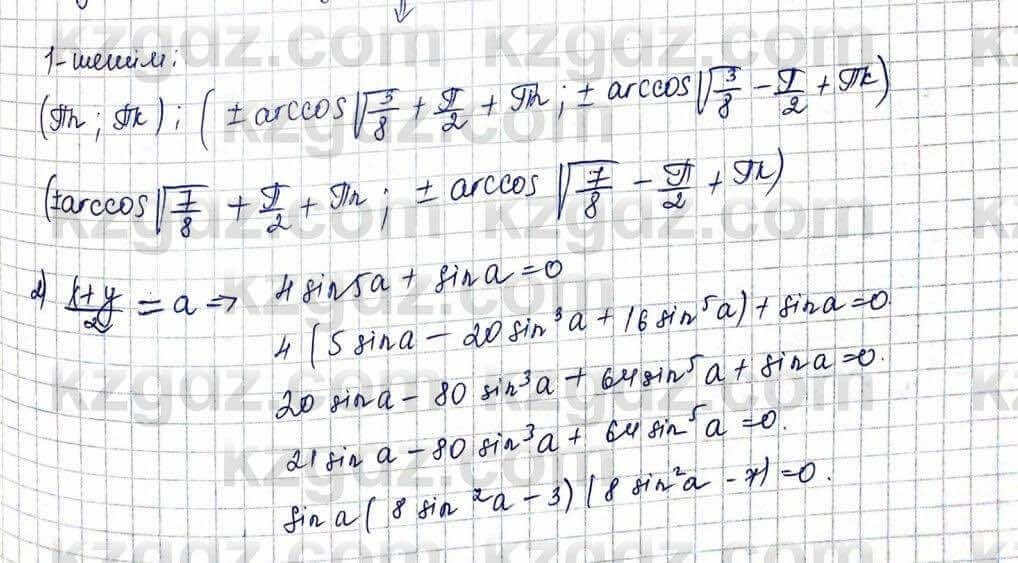 1-шешім:
(πn; πk); (± arccos√3/8 + π/2 + πn; ± arccos√3/8 − π/2 + πk)
(±arccos√7/8 + π/2 + πn; ± arccos√7/8 − π/2 + πk)
2) x+y/2 = a ⇒ 4 sin5a + sin a = 0
4(5 sin a − 20 sin³a + 16 sin⁵a) + sin a = 0.
20 sin a − 80 sin³a + 64 sin⁵a + sin a = 0.
21 sin a − 80 sin³a + 64 sin⁵a = 0.
sin a (8 sin²a − 3)(8 sin²a − 7) = 0.
kzgdz.com